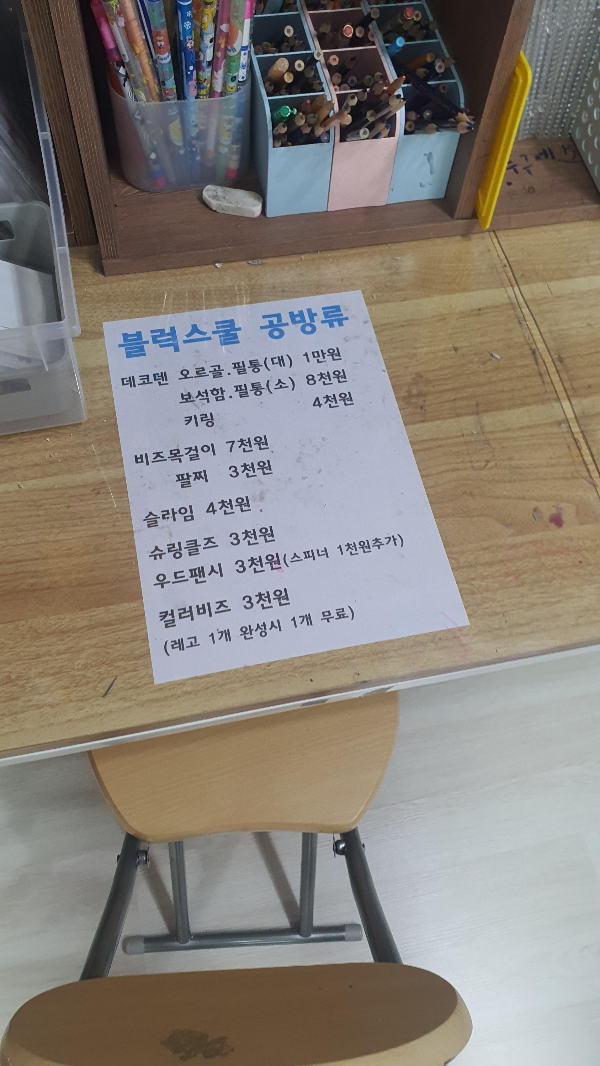 블럭스쿨 공방류
데코텐 오르골.필통(대) 1만원
보석함.필통(소) 8천원
키링 4천원
비즈목걸이 7천원
팔찌 3천원
슬라임 4천원
슈링클즈 3천원
우드팬시 3천원(스피너 1천원추가)
컬러비즈 3천원
(레고 1개 완성시 1개 무료)